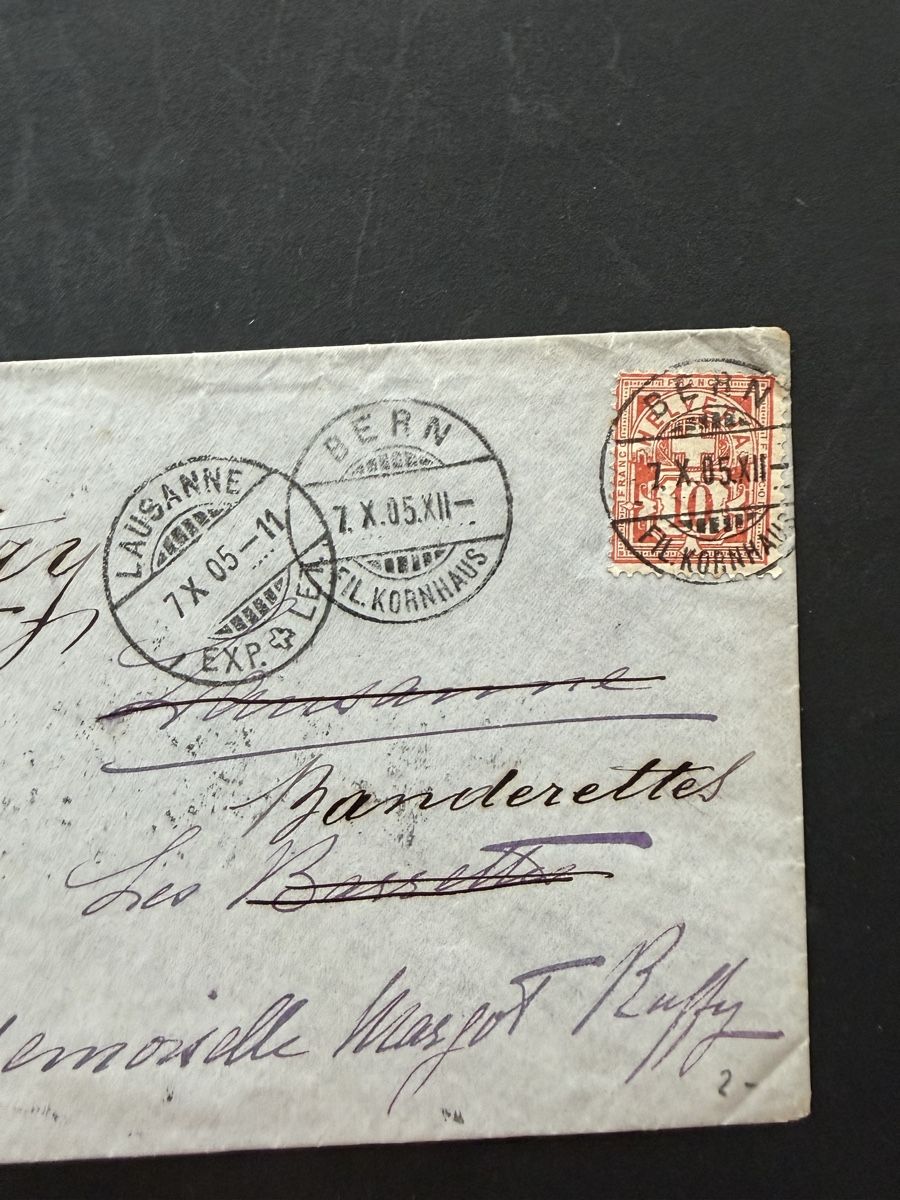 BERN
7.X.05.XII-
FIL.KORNHAUS
FRANCO
10
BERN
7.X.05.XII-
FIL.KORNHAUS
LAUSANNE
7 X 05 - 11
EXP. LET.
Lausanne
Banderettes
Les Bassettes
Margot Ruffy
2-